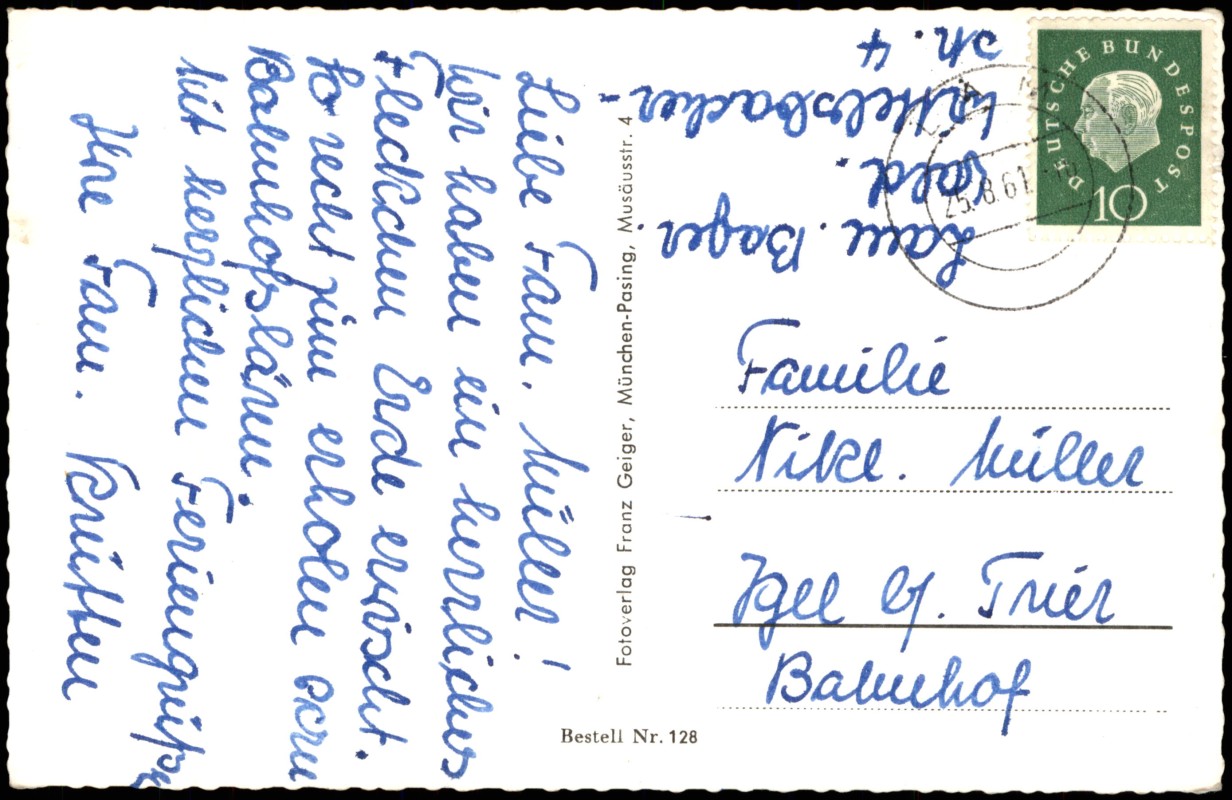 Liebe Fam. Müller!
Wir haben ein herrliches
Fleckchen Erde erwischt.
So recht zum erholen vom
Bahnhofslärm.
Mit herzlichen Feriengrüßen
Ihre Fam. Krütten
Fotoverlag Franz Geiger, München-Pasing, Musäusstr. 4
Bestell Nr. 128
Zam. Bayer.
Wald.
Wittelsbacher-
str. 4
DEUTSCHE BUNDESPOST
10
25.8.61
Familie
Nikl. Müller
Igel b/. Trier
Bahnhof